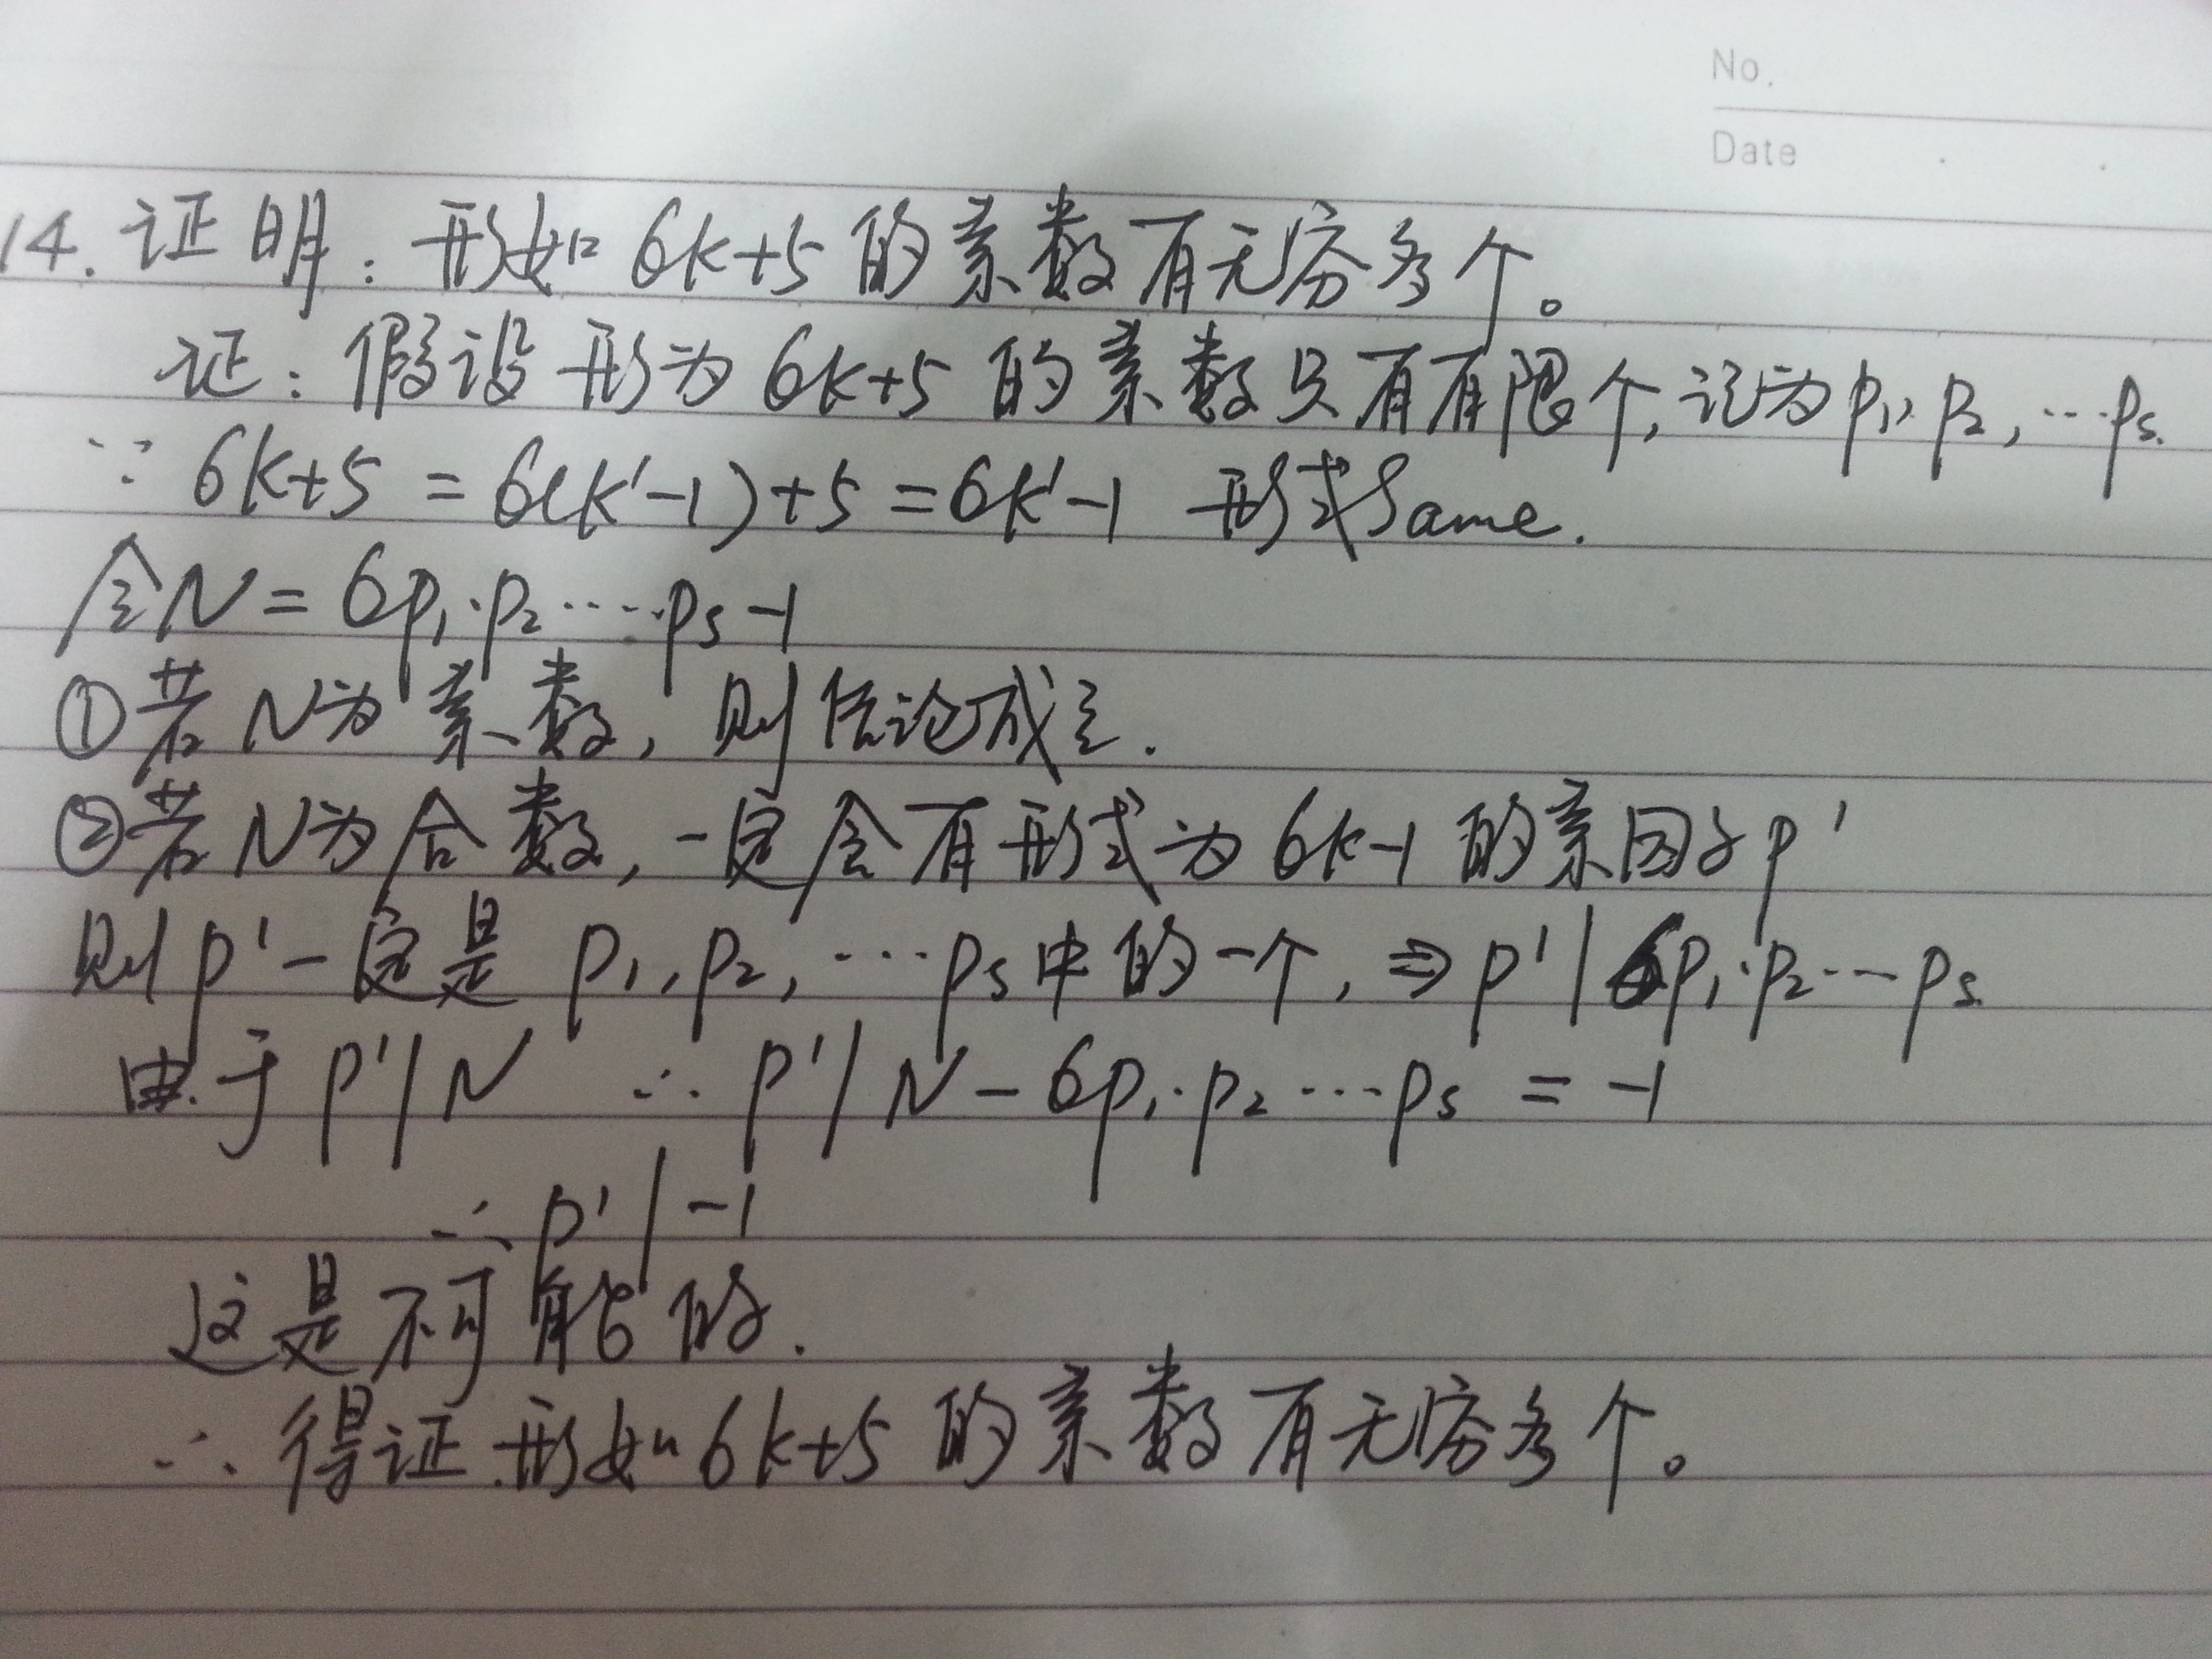 No.
Date
14. 证明：形如 6k+5 的素数有无穷多个。
证：假设形为 6k+5 的素数只有有限个，记为 p₁, p₂, …pₛ.
∵ 6k+5 = 6(k'-1)+5 = 6k'-1 形式Same.
令N = 6p₁·p₂……pₛ-1
①若N为素数，则结论成立.
②若N为合数，一定含有形式为 6k-1 的素因子p'
则p'一定是 p₁, p₂, …pₛ中的一个，⇒ p' | 6p₁·p₂…pₛ
由于 p' | N ∴ p' | N - 6p₁·p₂…pₛ = -1
∴ p' | -1
这是不可能的.
∴ 得证形如 6k+5 的素数有无穷多个。